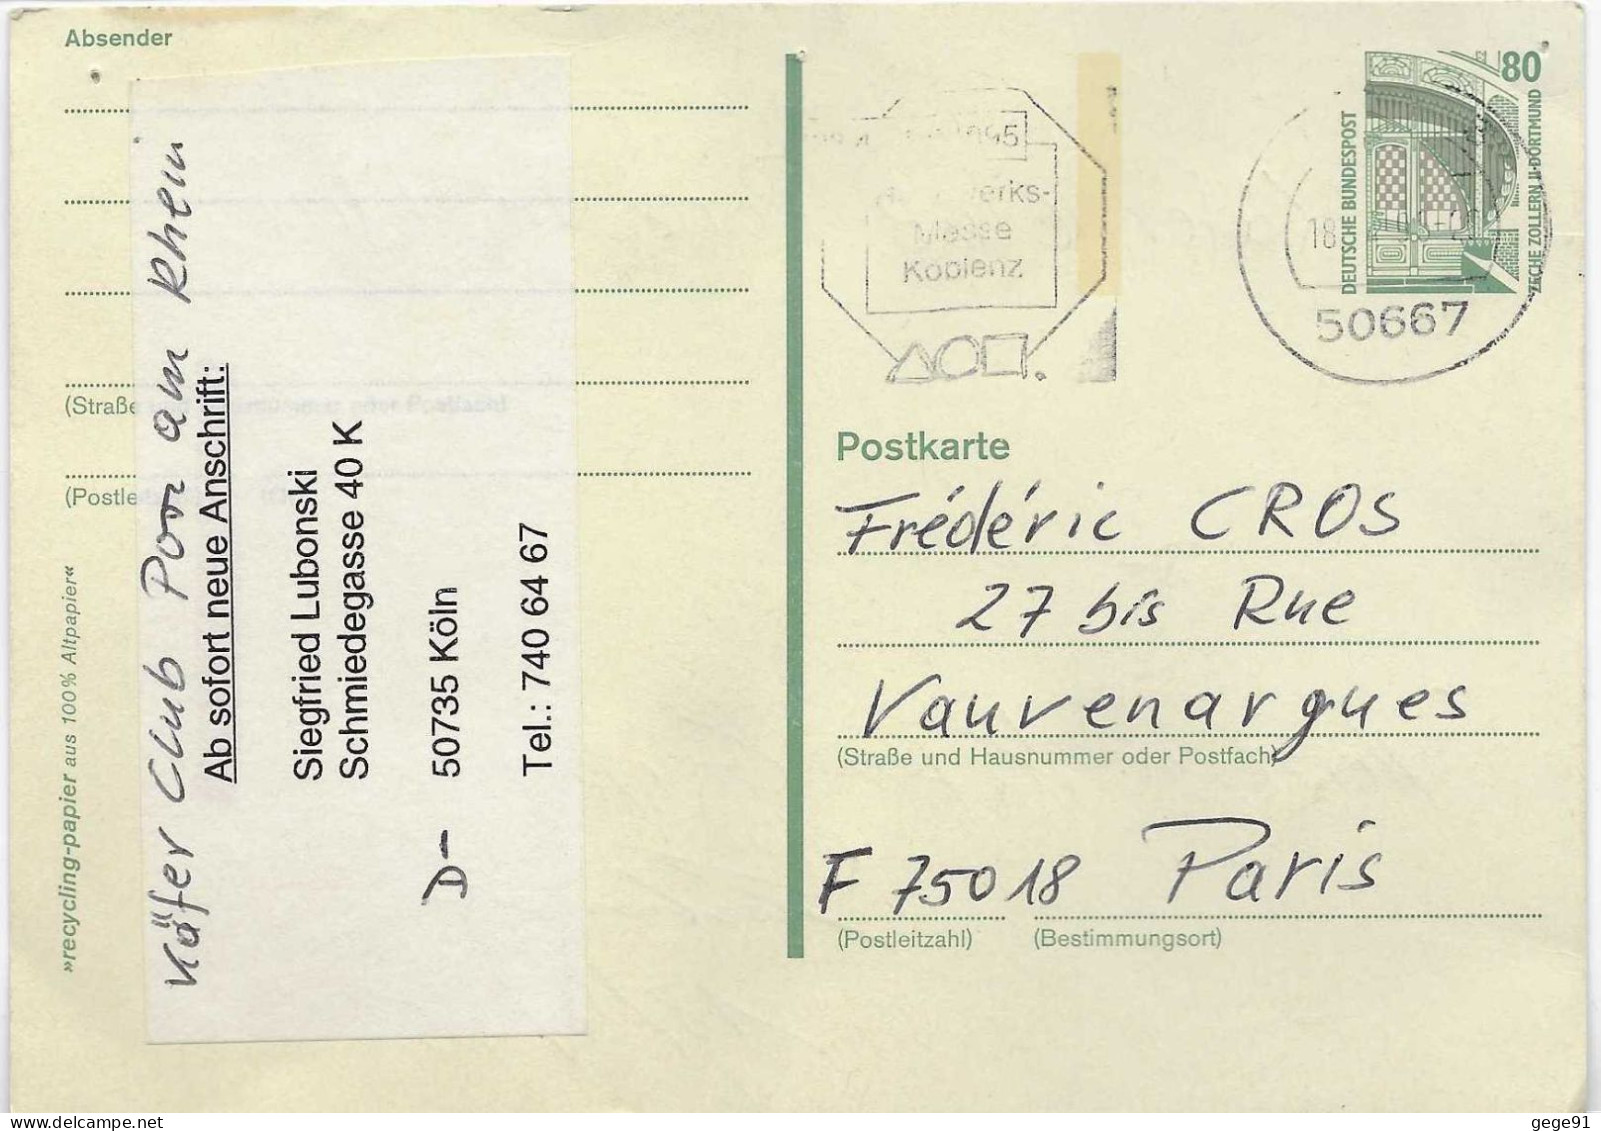 Absender
Käfer Club Porz am Rhein
Ab sofort neue Anschrift:
Siegfried Lubonski
Schmiedegasse 40 K
D- 50735 Köln
Tel.: 740 64 67
(Straße
oder Postfach)
(Postle
»recycling-papier aus 100% Altpapier«
1995
Messe
Koblenz
80
DEUTSCHE BUNDESPOST
ZECHE ZOLLERN II·DORTMUND
18
50667
Postkarte
Frédéric CROS
27 bis Rue
Vauvenargues
(Straße und Hausnummer oder Postfach)
F 75018 Paris
(Postleitzahl) (Bestimmungsort)
gege91